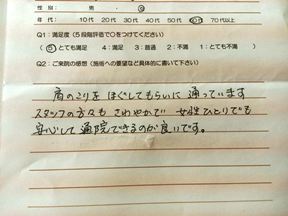 性別： 男 ・ 女
年 令： 10代 20代 30代 40代 50代 60代 70代以上
Q1：満足度（5段階評価で○をつけてください）
5：とても満足 4：満足 3：普通 2：不満 1：とても不満
Q2：ご来院の感想（施術への要望など具体的に書いて下さい）
肩のこりをほぐしてもらいに通っています
スタッフの方々もさわやかで 女性ひとりでも
安心して通院できるのが良いです。